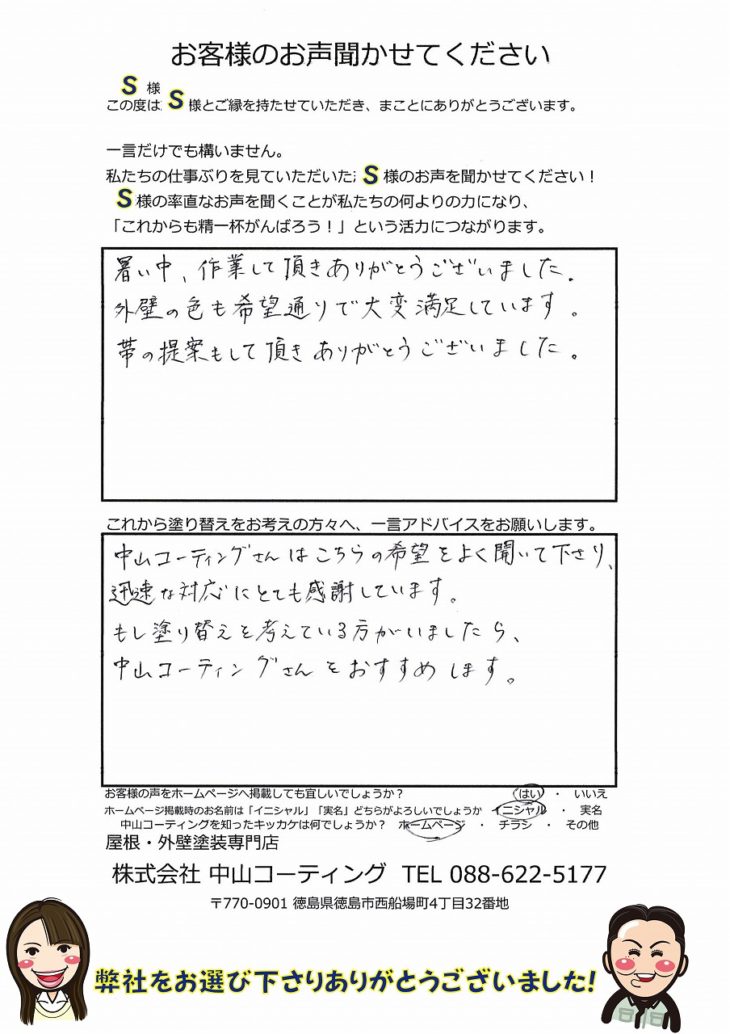 お客様のお声聞かせてください
S 様
この度は S 様とご縁を持たせていただき、まことにありがとうございます。
一言だけでも構いません。
私たちの仕事ぶりを見ていただいた S 様のお声を聞かせてください！
S 様の率直なお声を聞くことが私たちの何よりの力になり、
「これからも精一杯がんばろう！」という活力につながります。
暑い中、作業して頂きありがとうございました。
外壁の色も希望通りで大変満足しています。
帯の提案もして頂きありがとうございました。
これから塗り替えをお考えの方々へ、一言アドバイスをお願いします。
中山コーティングさんはこちらの希望をよく聞いて下さり、
迅速な対応にとても感謝しています。
もし塗り替えを考えている方がいましたら、
中山コーティングさんをおすすめします。
お客様の声をホームページへ掲載しても宜しいでしょうか？ はい ・ いいえ
ホームページ掲載時のお名前は「イニシャル」「実名」どちらがよろしいでしょうか イニシャル ・ 実名
中山コーティングを知ったキッカケは何でしょうか？ ホームページ ・ チラシ ・ その他
屋根・外壁塗装専門店
株式会社 中山コーティング TEL 088-622-5177
〒770-0901 徳島県徳島市西船場町4丁目32番地
弊社をお選び下さりありがとうございました!